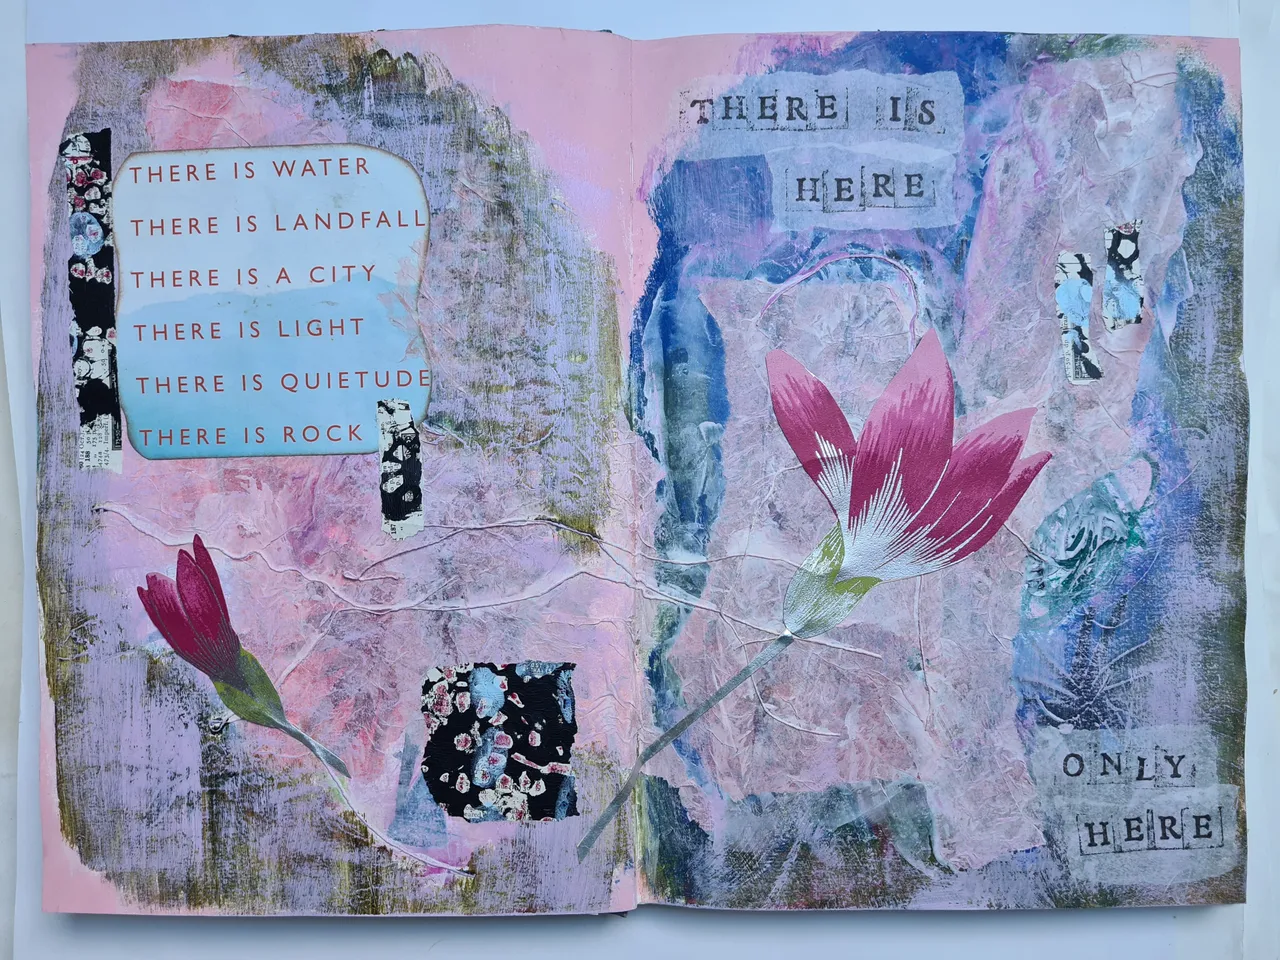 THERE IS WATER
THERE IS LANDFALL
THERE IS A CITY
THERE IS LIGHT
THERE IS QUIETUDE
THERE IS ROCK
THERE IS
HERE
ONLY
HERE